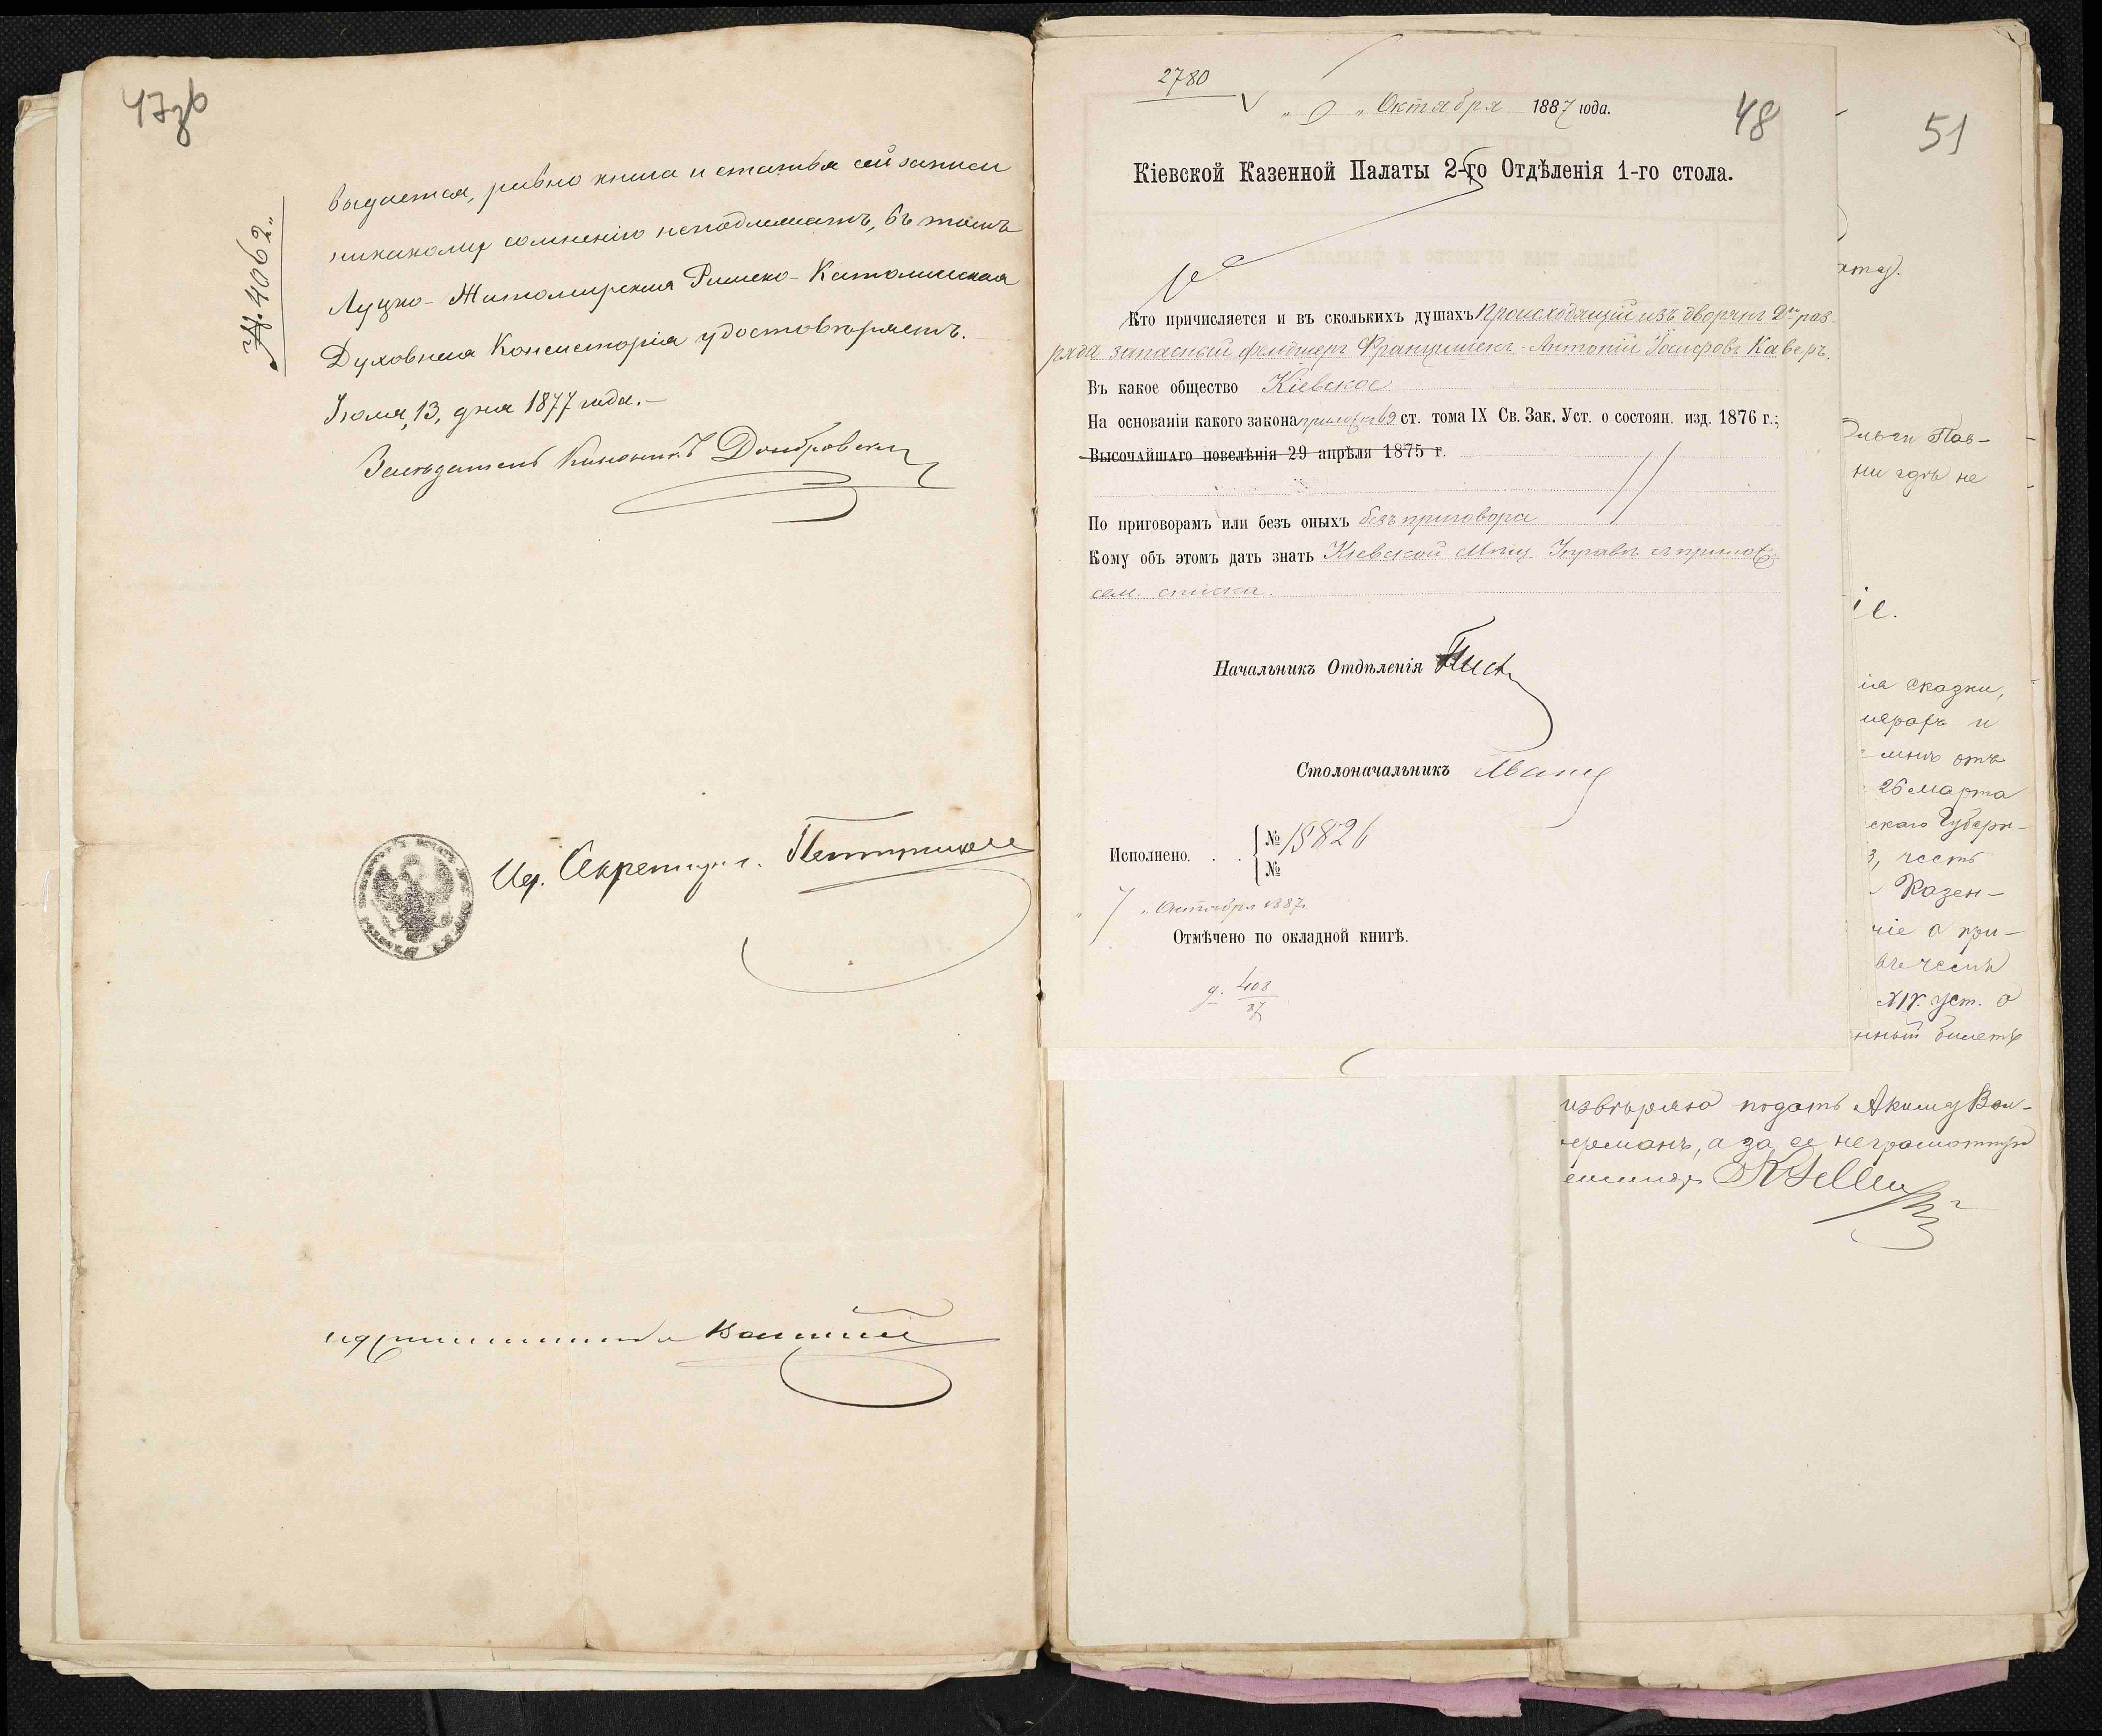 47зв
№. 4062.
выдается, равно книга и статья сей записи
никакому сомнѣнію неподлежатъ, въ томъ
Луцко-Житомирская Римско-Католическая
Духовная Консисторія удостовѣряетъ.-
Іюля, 13, дня 1877 года.-
Засѣдатель Каноникъ Домбровски
Ид. Секретаря.
2780
Октября 1887 года.
48
Кіевской Казенной Палаты 2-го Отдѣленія 1-го стола.
Кто причисляется и въ сколькихъ душахъ Происходящій изъ дворянъ 2го раз-
ряда запасный фельдшеръ Францишекъ-Антоній Іосифовъ Каверъ.
Въ какое общество Кіевское
На основаніи какого закона прилож. къ 69 ст. тома IX Св. Зак. Уст. о состоян. изд. 1876 г.;
Высочайшаго повелѣнія 29 апрѣля 1875 г.
По приговорамъ или безъ оныхъ безъ приговора
Кому объ этомъ дать знать Кіевской Мѣщ. Управѣ съ прилож.
сем. списка.
Начальникъ Отдѣленія
Столоначальникъ
Исполнено. . . № 15826
№
" 7 " Октября 1887.
Отмѣчено по окладной книгѣ.
д. 408
87
51
Ольги Пав-
ни гдѣ не
іе.
ія сказки,
мѣ отъ
26 Марта
скаго Губерн-
3, честь
Казен-
ніе о при-
XIV. уст. о
нный билетъ
извѣряю подать Акиму Вас-
серманъ, а за ее неграмотную